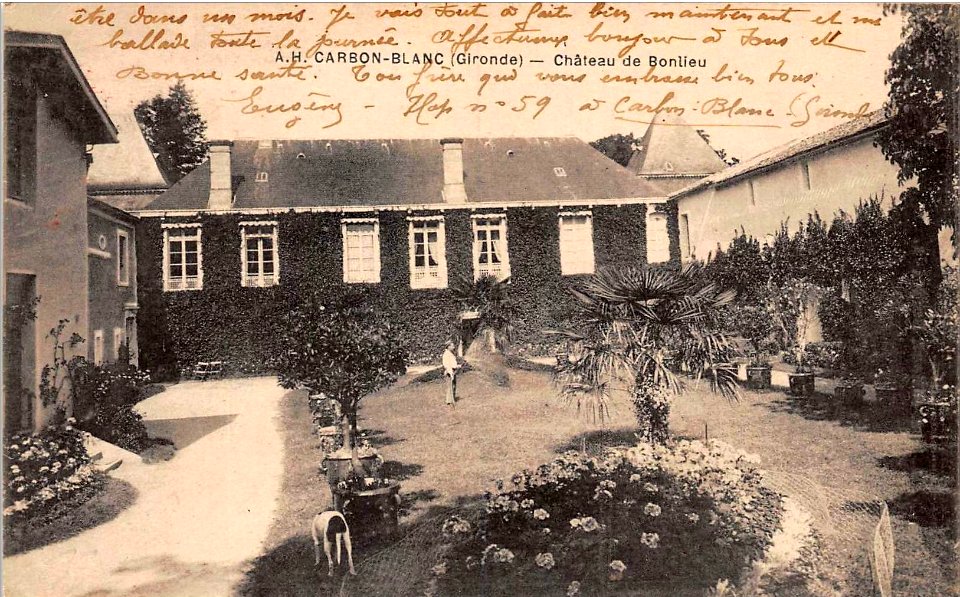 être dans un mois. Je vais tout à fait bien maintenant et me
ballade toute la journée. Affectueux bonjour à tous et
A.H. CARBON-BLANC (Gironde) — Château de Bonlieu
Bonne santé. Ton frère que vous embrasse bien tous.
Eugène - Hop n° 59 à Carbon-Blanc (Gironde